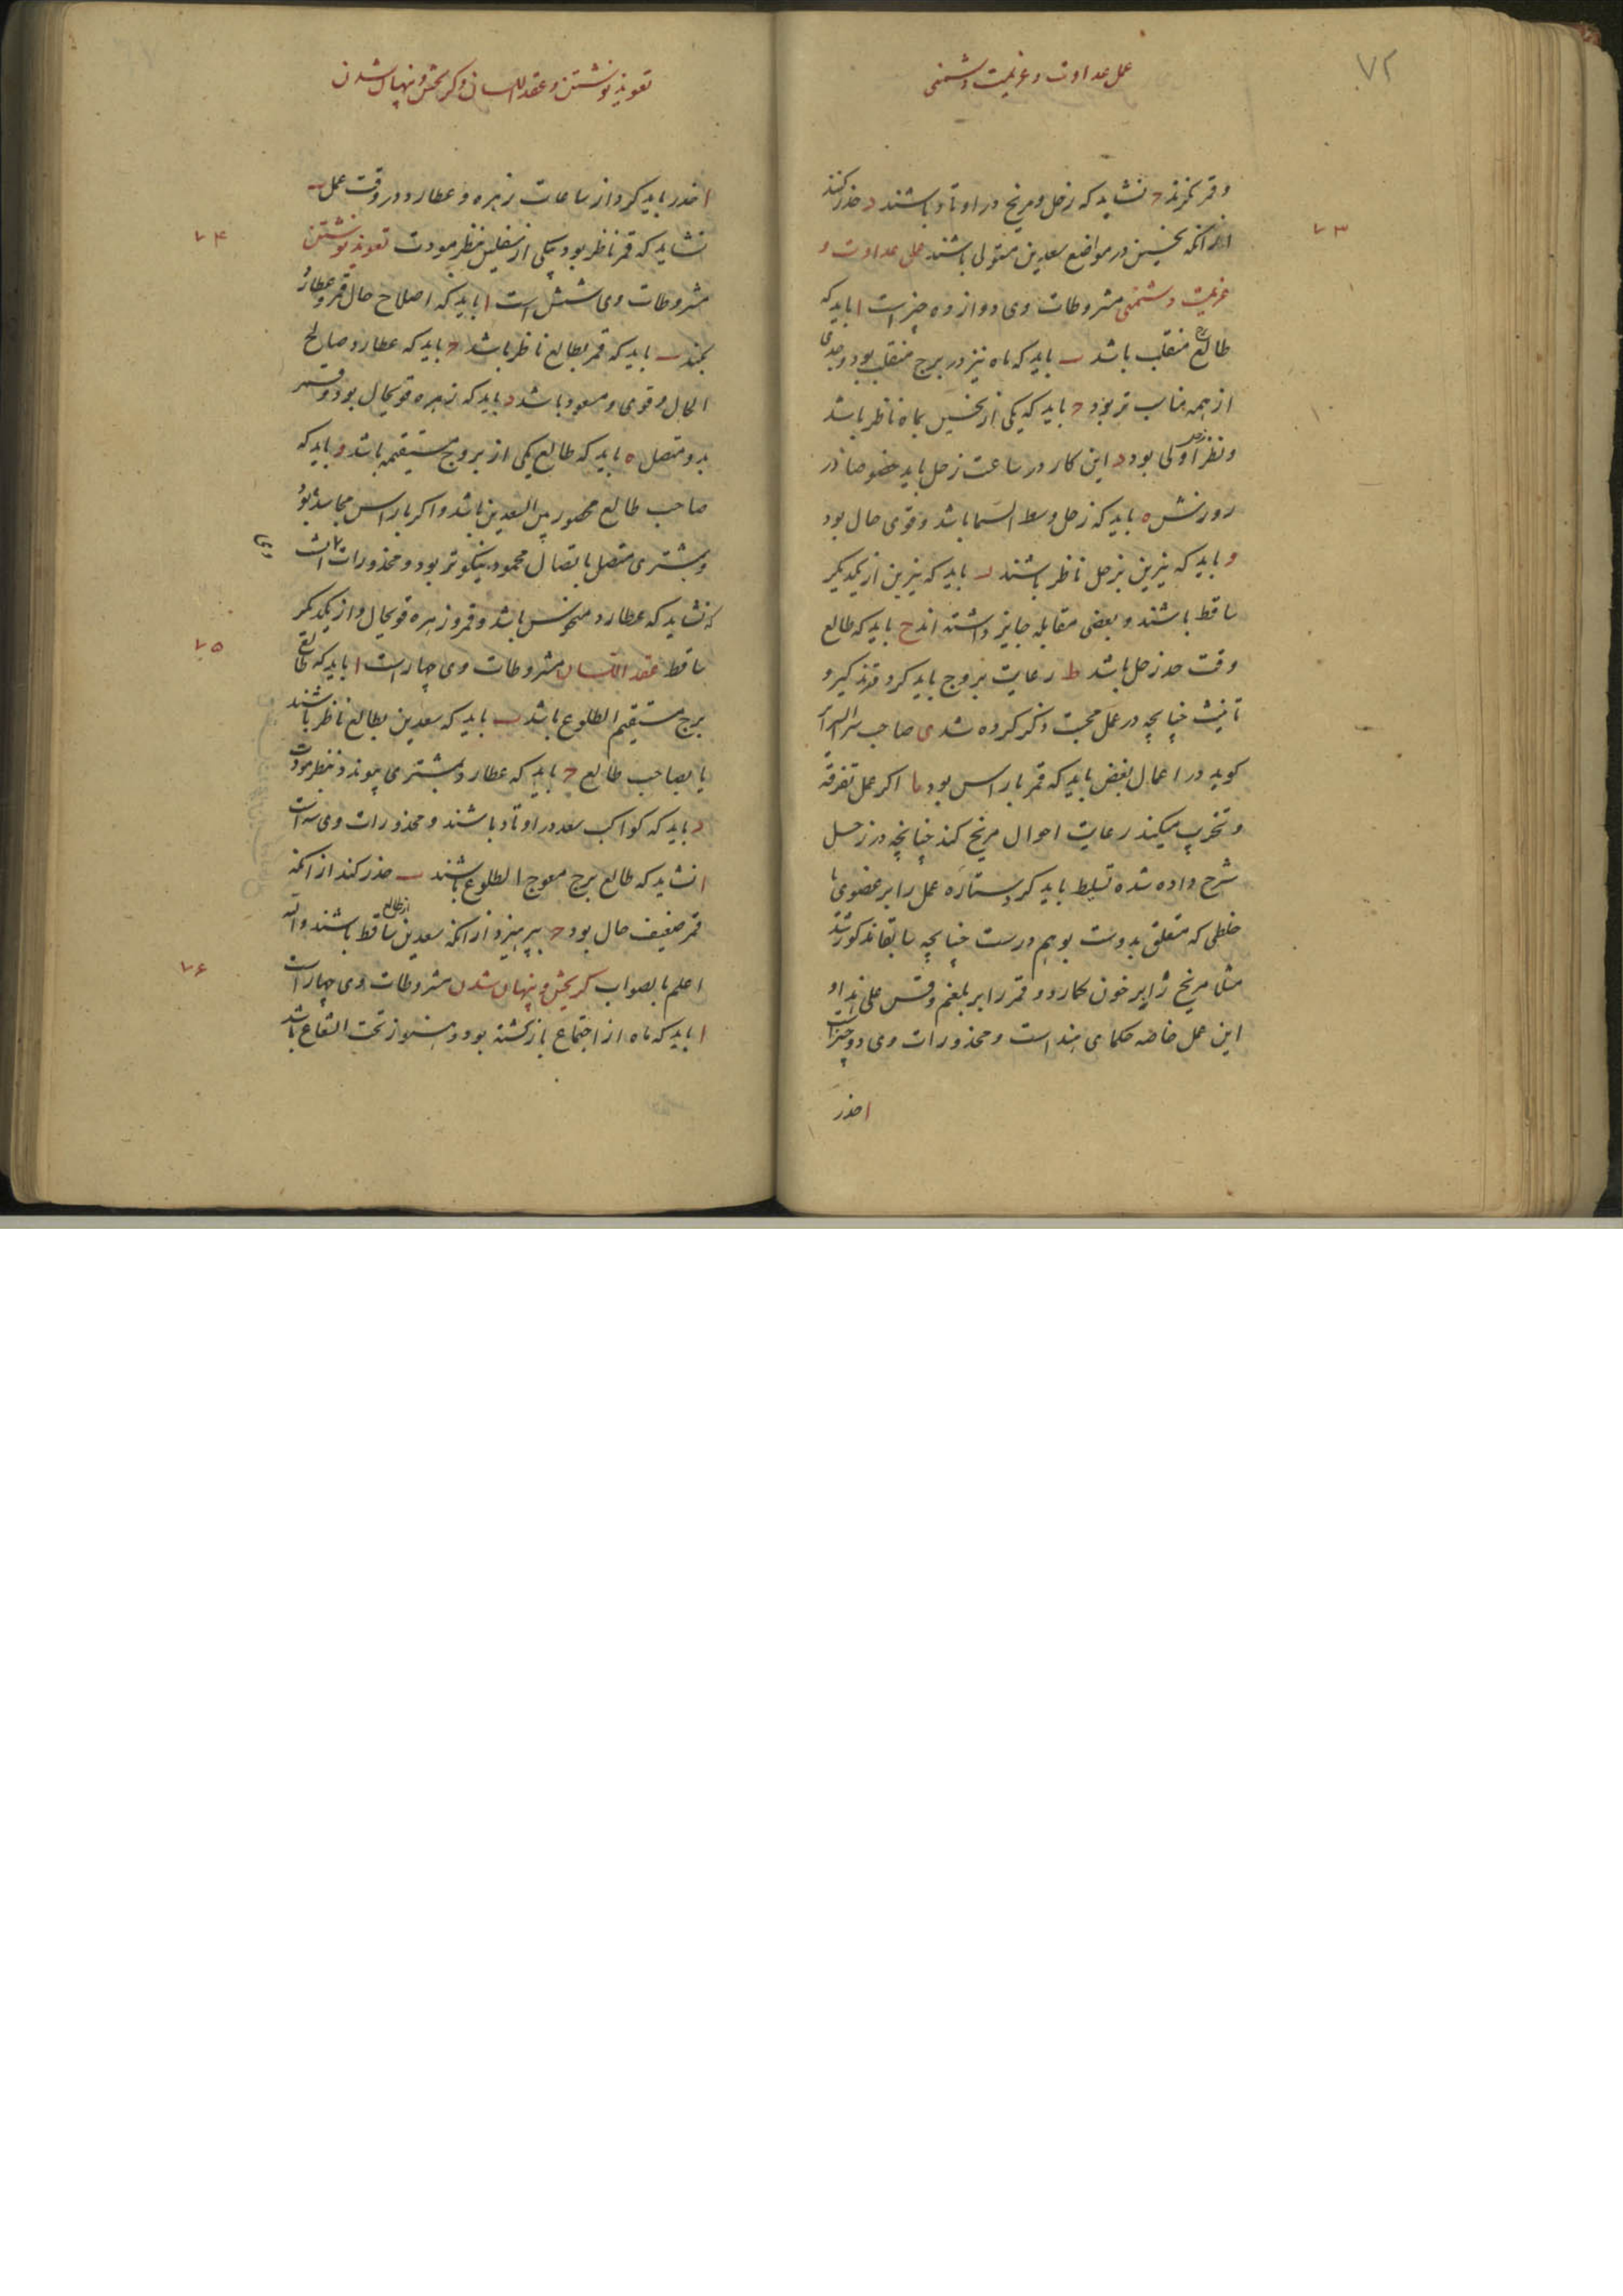 ۷۲
عمل عداوت و عزیمت دشمنی
وقمر نحرند ح نشاید که زحل و مریخ در اوتاد باشند د حذر کنند
۷۳
از انکه نحسین در مواضع سعدین متولی باشند عمل عداوت و
عزیمت دشمنی مشروطات وی دوازده چیز است ا باید که
طالع منقلب باشد ب باید که ماه نیز در برج منقلب بود و جدی
از همه مناسب تر بود ح باید که یکی از نحسین بماه ناظر باشد
ونظر زحل اولی بود د این کار در ساعت زحل باید خصوصا در
روزش ه باید که زحل وسط السما باشد و قوی حال بود
و باید که نیرین بزحل ناظر باشند ر باید که نیرین از یکدیکر
ساقط باشند و بعضی مقابله جایز داشته اند ح باید که طالع
وقت حد زحل باشد ط رعایت بروج باید کرد و تذکیر و
تانیث چنانچه در عمل محبت ذکر کرده شد ی صاحب سرالسرائر
کوید در اعمال بغض باید که قمر باراس بود یا اکر عمل تفرقه
و تخریب میکند رعایت احوال مریخ کند چنانچه در زحل
شرح داده شد ه تسلیط باید کرد ستاره عمل را بر عضوی یا
خلطی که متعلق بدوست بوهم درست چنانچه سابقا مذکور شد
مثلا مریخ را بر خون کمارد و قمر را بر بلغم وقس علی هذا و
این عمل خاصه حکمای هند است و محذورات وی دو چیز است
ا حذر
تعویذ نوشتن و عقد اللسان و کریختن و پنهان شدن
ا حذر باید کرد از ساعات زهره و عطارد در وقت عمل ب
۷۴
نشاید که قمر ناظر بود بیکی از سفلیین بنظر مودت تعویذ نوشتن
مشروطات وی شش است ا باید که اصلاح حال قمر و عطارد
بکند ب باید که قمر بطالع ناظر باشد ح باید که عطارد صالح
الحال و قوی و مسعود باشد د باید که زهره قویحال بود و قمر
بدو متصل ه باید که طالع یکی از بروج مستقیمه باشد و باید که
صاحب طالع محصور بین السعدین باشد و اکر با راس مجاسد بود
و بمشتری متصل باتصال محمود نیکوتر بود و محذورات انست
که نشاید که عطارد منحوس باشد و قمر و زهره قویحال و از یکدیکر
۷۵
ساقط عقد اللسان مشروطات وی چهار است ا باید که طالع
برج مستقیم الطلوع باشد ب باید که سعدین بطالع ناظر باشند
یا بصاحب طالع ح باید که عطارد بمشتری پیوندد بنظر مودت
د باید که کواکب سعد در اوتاد باشند و محذورات وی سه است
ا نشاید که طالع برج معوج الطلوع باشند ب حذر کند از انکه
قمر ضعیف حال بود ح بپرهیزد از انکه سعدین از طالع ساقط باشند والله
۷۶
اعلم بالصواب کریختن و پنهان شدن مشروطات وی چهار است
ا باید که ماه از اجتماع باز کشته بود و هنوز تحت الشعاع باشد